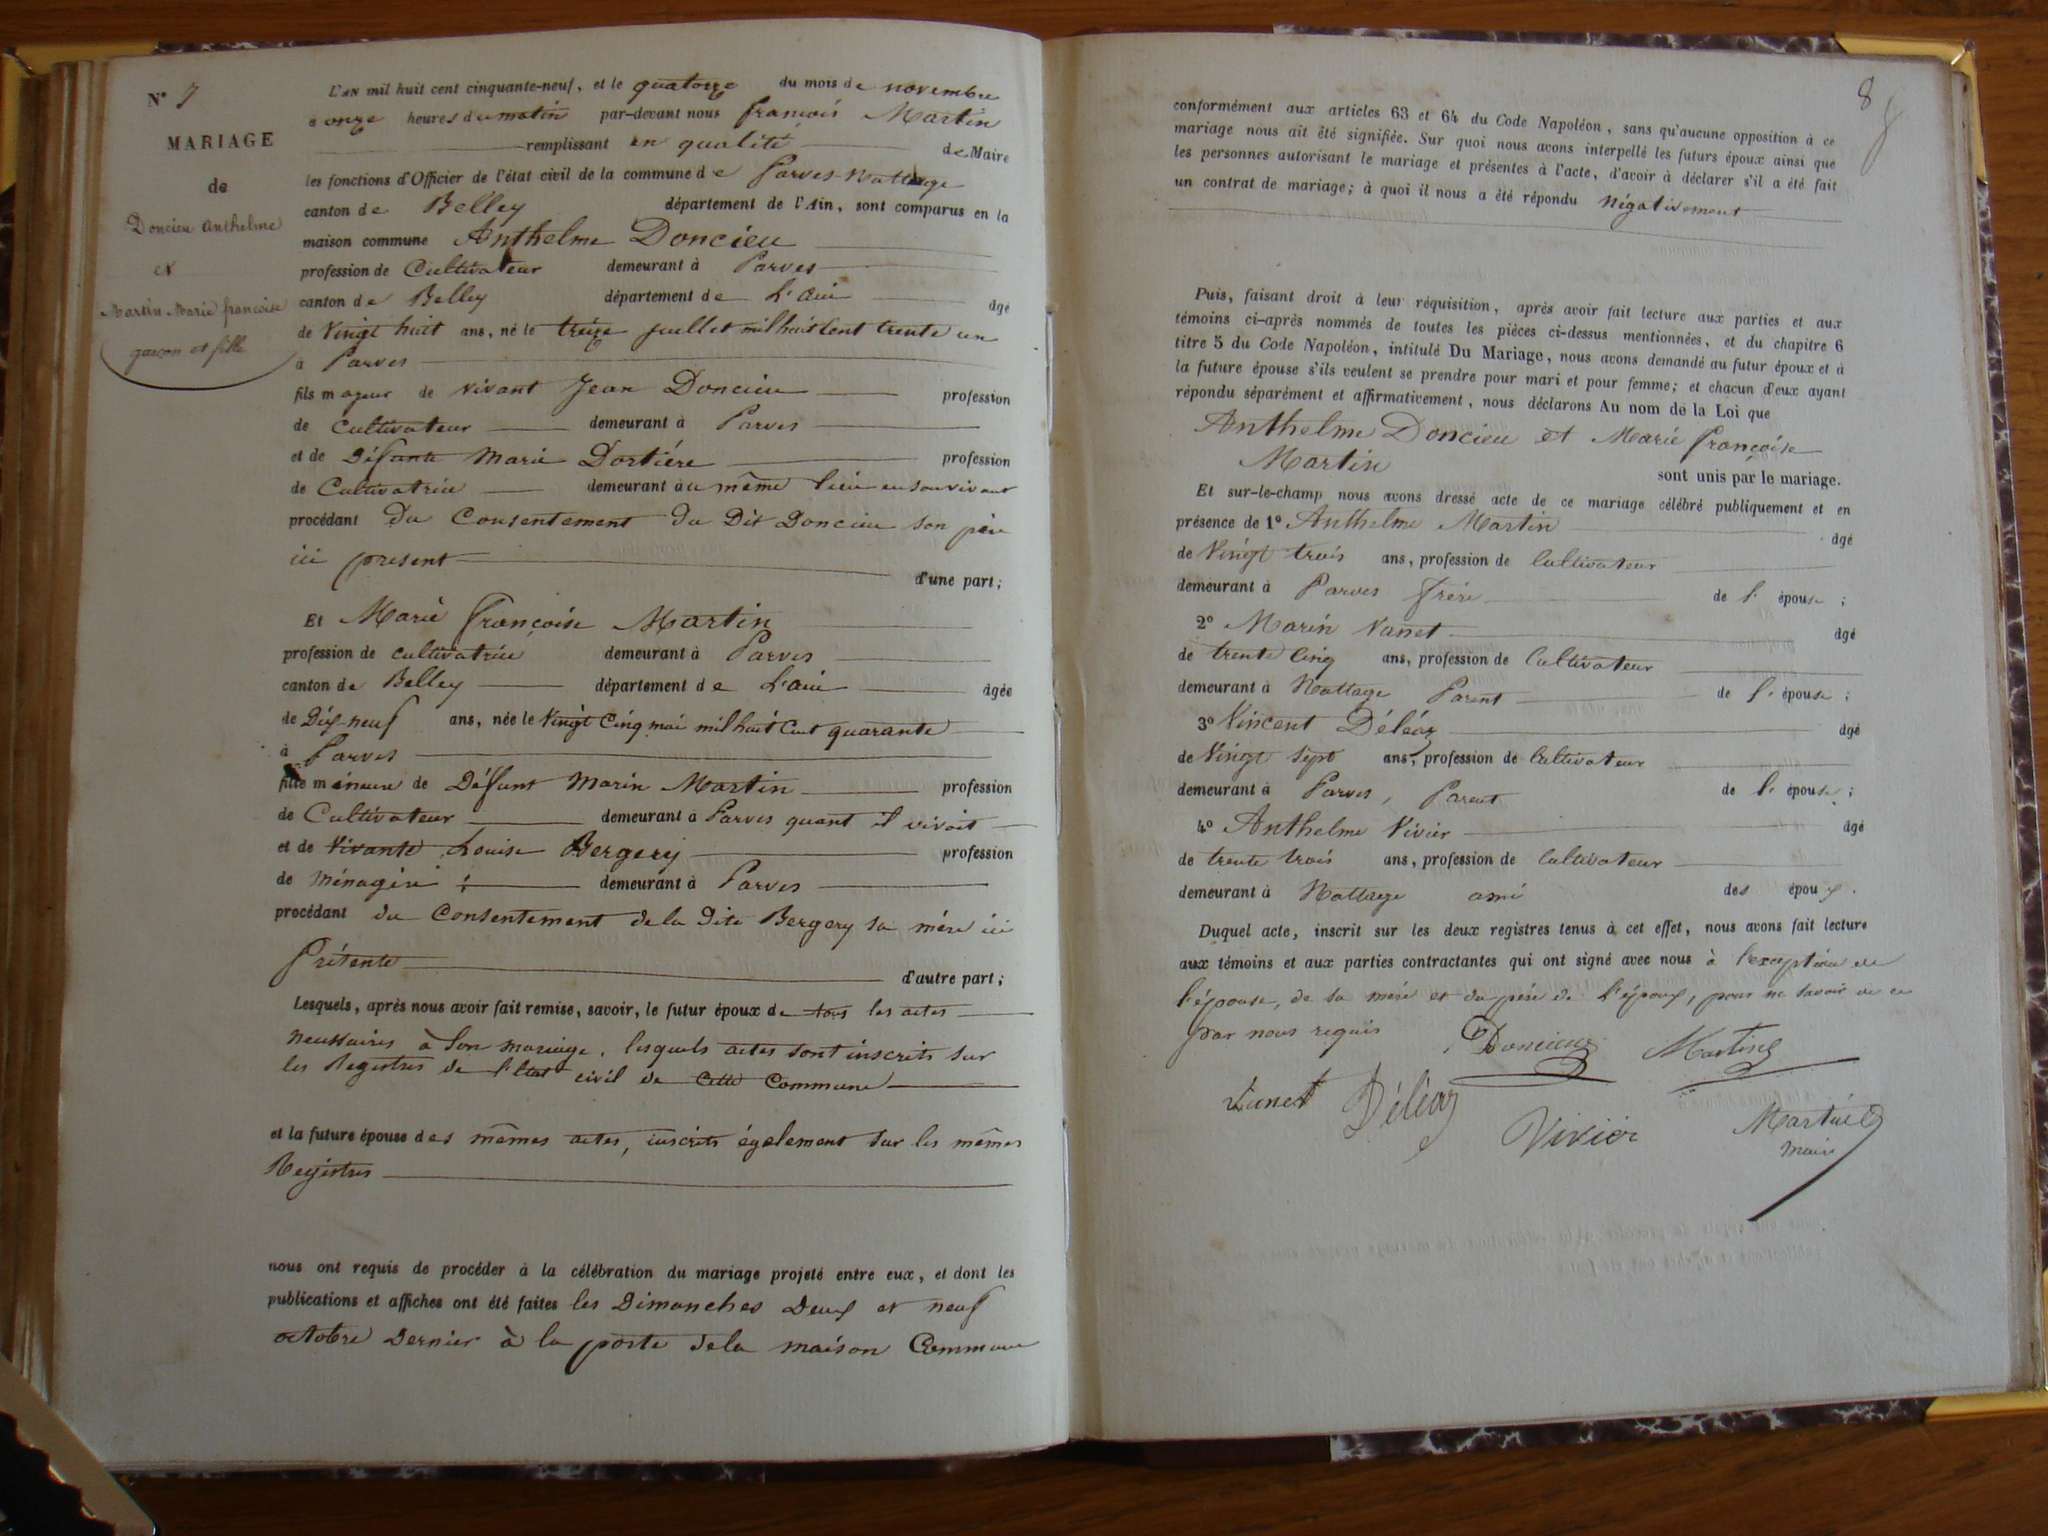 N° 7
MARIAGE
de
Doncieu Anthelme
et
Martin Marie françoise
garcon et fille
L'AN mil huit cent cinquante-neuf, et le quatorze du mois de novembre
à onze heures du matin par-devant nous françois Martin
remplissant en qualité de Maire
les fonctions d'Officier de l'état civil de la commune de Parves-Nattage
canton de Belley département de l'Ain, sont comparus en la
maison commune Anthelme Doncieu
profession de Cultivateur demeurant à Parves
canton de Belley département de L'ain âgé
de Vingt huit ans, né le treize juillet mil huit Cent trente un
à Parves
fils majeur de vivant Jean Doncieu profession
de Cultivateur demeurant à Parves
et de Défunte Marie Dortière profession
de Cultivatrice demeurant au même lieu en son vivant
procédant du Consentement du Dit Doncieu son père
ici présent d'une part;
Et Marie françoise Martin
profession de cultivatrice demeurant à Parves
canton de Belley département de L'ain âgée
de Dix-neuf ans, née le Vingt Cinq mai mil huit Cent quarante
à Parves
fille mineure de Défunt Marin Martin profession
de Cultivateur demeurant à Parves quant il vivait
et de Vivante Louise Bergery profession
de ménagère demeurant à Parves
procédant du Consentement de la Dite Bergery sa mère ici
Présente d'autre part;
Lesquels, après nous avoir fait remise, savoir, le futur époux de tous les actes
necessaires à Son mariage, lesquels actes sont inscrits sur
les Registres de l'Etat civil de Cette Commune
et la future épouse des mêmes actes, inscrits également sur les mêmes
Registres
nous ont requis de procéder à la célébration du mariage projeté entre eux, et dont les
publications et affiches ont été faites les Dimanches Deux et neuf
octobre Dernier à la porte de la maison Commune
8
conformément aux articles 63 et 64 du Code Napoléon, sans qu'aucune opposition à ce
mariage nous ait été signifiée. Sur quoi nous avons interpellé les futurs époux ainsi que
les personnes autorisant le mariage et présentes à l'acte, d'avoir à déclarer s'il a été fait
un contrat de mariage; à quoi il nous a été répondu négativement
Puis, faisant droit à leur réquisition, après avoir fait lecture aux parties et aux
témoins ci-après nommés de toutes les pièces ci-dessus mentionnées, et du chapitre 6
titre 5 du Code Napoléon, intitulé Du Mariage, nous avons demandé au futur époux et à
la future épouse s'ils veulent se prendre pour mari et pour femme; et chacun d'eux ayant
répondu séparément et affirmativement, nous déclarons Au nom de la Loi que
Anthelme Doncieu et Marie françoise
Martin sont unis par le mariage.
Et sur-le-champ nous avons dressé acte de ce mariage célébré publiquement et en
présence de 1° Anthelme Martin âgé
de Vingt trois ans, profession de Cultivateur
demeurant à Parves frère de l' épouse;
2° Marin Vanet âgé
de trente Cinq ans, profession de Cultivateur
demeurant à Nattage Parent de l' épouse;
3° Vincent Déléaz âgé
de Vingt sept ans, profession de Cultivateur
demeurant à Parves, Parent de l' épouse;
4° Anthelme Vivier âgé
de trente trois ans, profession de Cultivateur
demeurant à Nattage ami des époux.
Duquel acte, inscrit sur les deux registres tenus à cet effet, nous avons fait lecture
aux témoins et aux parties contractantes qui ont signé avec nous à l'exception de
l'épouse, de sa mère et du père de l'époux, pour ne savoir de ce
par nous requis Doncieux Martin
Vanet Déléaz Vivier Martin
maire